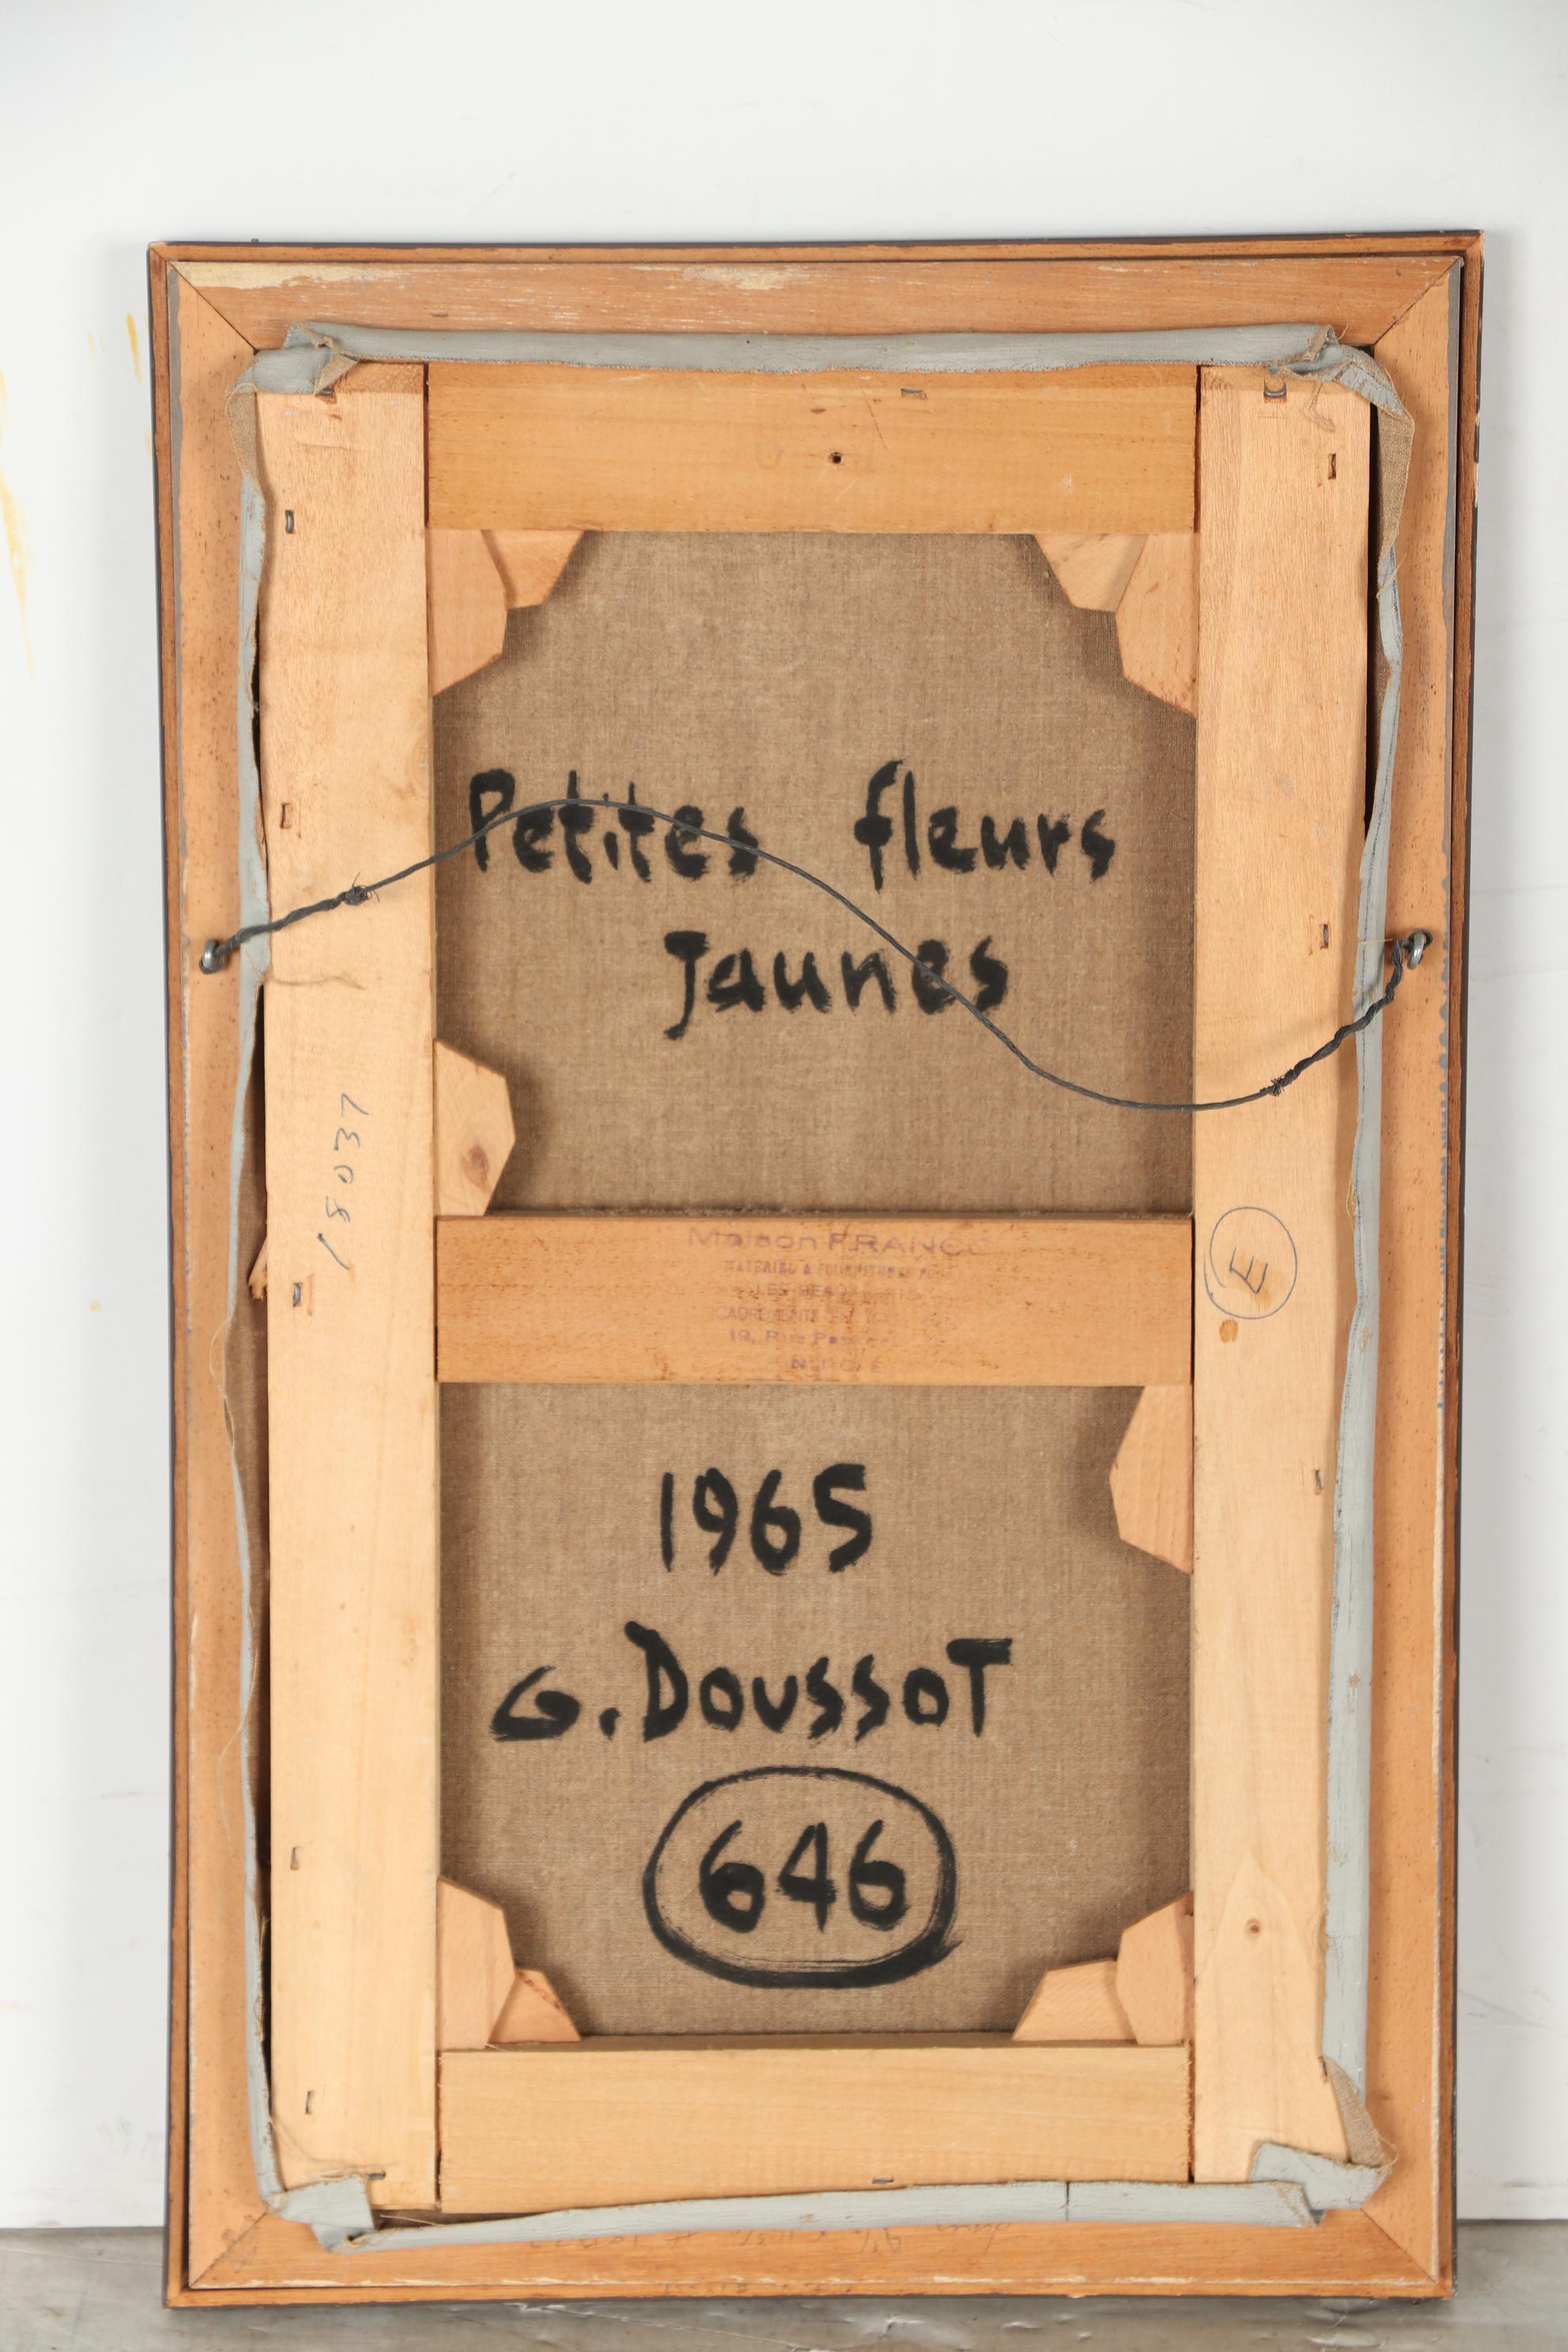 Petites fleurs
Jaunes
18037
E
Maison FRANCO
MATERIEL & FOURNITURES POUR
LES BEAUX
ENCADREMENTS EN TOUS
19, Rue
NICE
1965
G. DoussoT
646